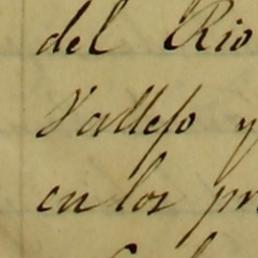 del Rio
Vallejo y
en los pr